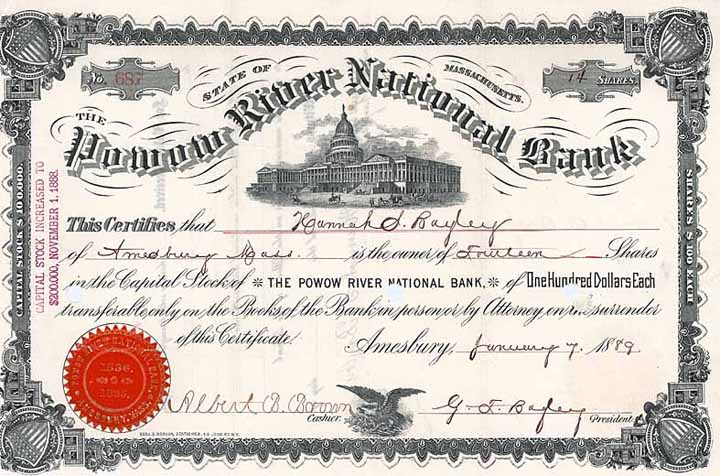 No. 687
STATE OF
MASSACHUSETTS.
14 SHARES
THE
Powow River National Bank
CAPITAL STOCK $100,000.
CAPITAL STOCK INCREASED TO
$200,000, NOVEMBER 1, 1888.
SHARES $100 EACH
This Certifies that Hannah S. Bagley
of Amesbury Mass. is the owner of Fourteen Shares
in the Capital Stock of * THE POWOW RIVER NATIONAL BANK, * of One Hundred Dollars Each
transferable only on the Books of the Bank in person or by Attorney on the surrender
of this Certificate. Amesbury, January 7, 1889
1836.
Albert D. Brown
Cashier.
G. F. Bagley
President